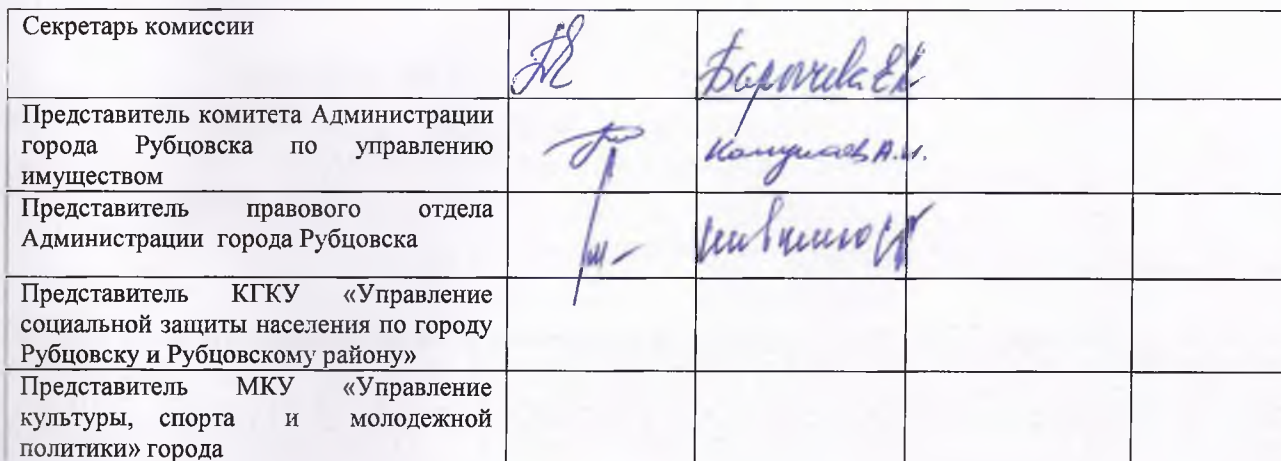 Секретарь комиссии
Барычева Е.К.
Представитель комитета Администрации
города Рубцовска по управлению
имуществом
А.И.
Представитель правового отдела
Администрации города Рубцовска
Представитель КГКУ «Управление
социальной защиты населения по городу
Рубцовску и Рубцовскому району»
Представитель МКУ «Управление
культуры, спорта и молодежной
политики» города